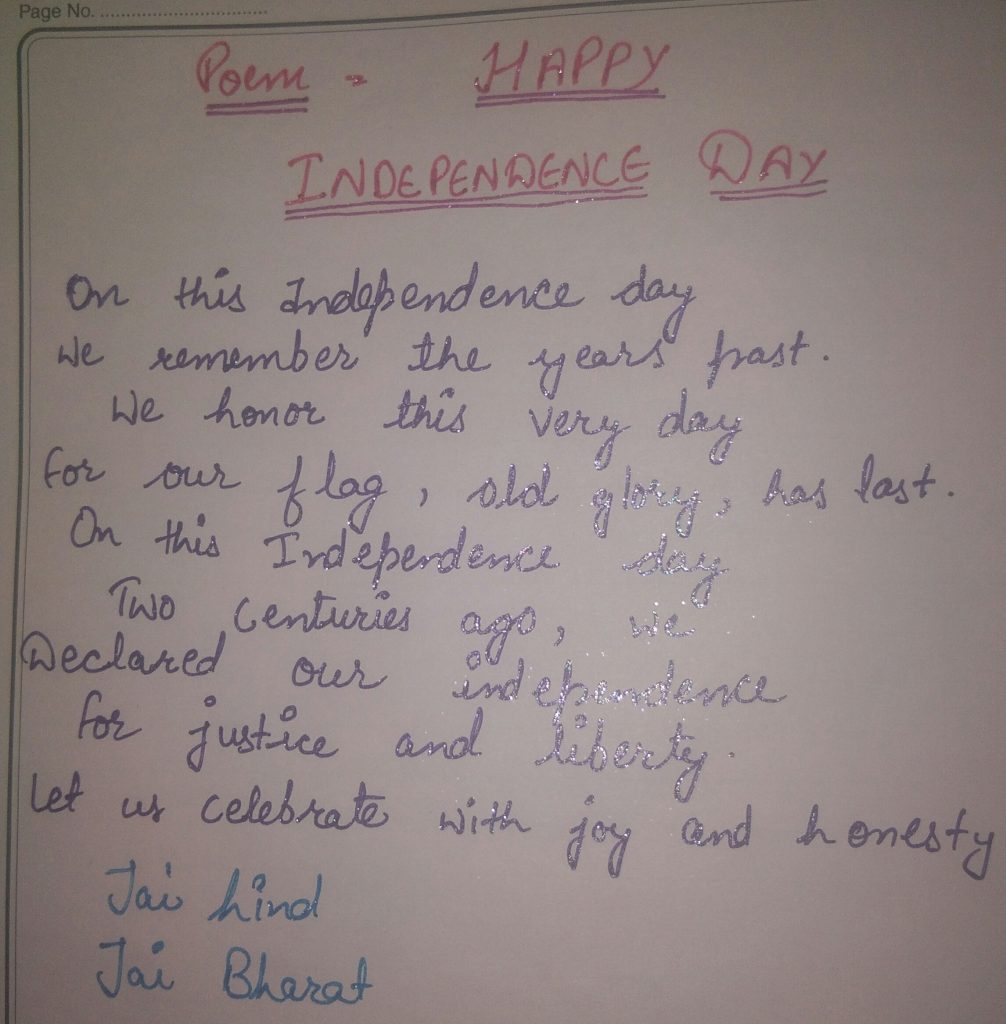 Page No. ................................
Poem - HAPPY
INDEPENDENCE DAY
On this Independence day
We remember the years past.
We honor this very day
For our flag, old glory, has last.
On this Independence day
Two Centuries ago, we
Declared our independence
for justice and liberty.
Let us celebrate with joy and honesty
Jai hind
Jai Bharat